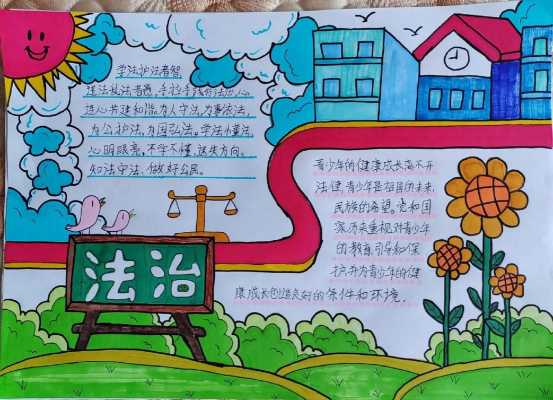 学法护法者智
违法执法者愚,手拉手护法治心
连心共建和谐,为人守法,为事依法,
为公护法,为国弘法。学法懂法
心明眼亮,不学不懂,迷失方向。
知法守法、做好公民。
青少年的健康成长离不开
法律,青少年是祖国的未来,
民族的希望。党和国
家历来重视对青少年
的教育、引导和保
护,并为青少年的健
康成长创造良好的条件和环境.
法治